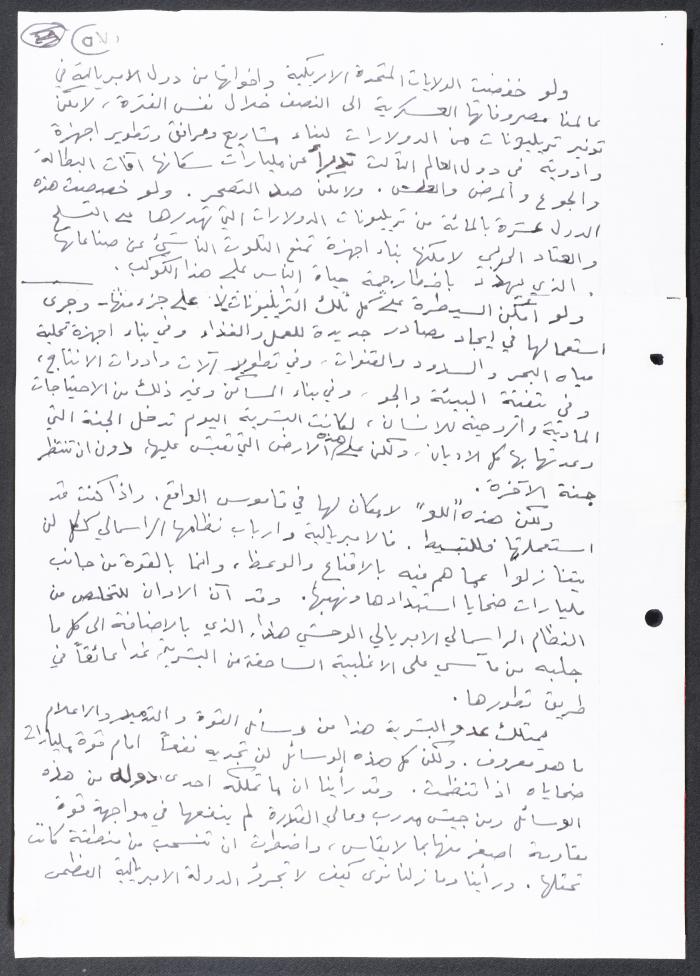 (٥٧)
ولو خفضت الولايات المتحدة الامريكية واخواتها من دول الامبريالية في
عالمنا مصروفاتها العسكرية الى النصف خلال نفس الفترة، لامكن
توفير تريليونات من الدولارات لبناء مشاريع ومرافق وتطوير اجهزة
وادوية في دول العالم الثالث تدرأ عن مليارات سكانها آفات البطالة
والجوع والمرض والعطش. ولامكن صد التصحر. ولو خصصت هذه
الدول عشرة بالمائة من تريليونات الدولارات التي تهدرها على التسلح
والعتاد الحربي لامكنها بناء اجهزة تمنع التلوث الناشئ عن صناعاتها
الذي يهدد باضطراد حياة الناس على هذا الكوكب.
ولو امكن السيطرة على كل تلك التريليونات لا على جزء منها - وجرى
استعمالها في ايجاد مصادر جديدة للعمل والغذاء وفي بناء اجهزة تحلية
مياه البحر والسدود والقنوات، وفي تطوير آلات وادوات الانتاج،
وفي تنقية البيئة والجو، وفي بناء المساكن وغير ذلك من الاحتياجات
المادية والروحية للانسان، لكانت البشرية اليوم تدخل الجنة التي
وعدتها بها كل الاديان، ولكن على هذه الارض التي تعيش عليها، دون ان تنتظر
جنة الآخرة.
ولكن هذه "اللو" لا مكان لها في قاموس الواقع. واذا كنت قد
استعملتها فللتبسيط. فالامبريالية وارباب نظامها الراسمالي ككل لن
يتنازلوا عما هم فيه بالاقناع والوعظ، وانما بالقوة من جانب
مليارات ضحايا استبدادها ونهبها. وقد آن الاوان للتخلص من
النظام الراسمالي الامبريالي الوحشي هذا، الذي بالاضافة الى كل ما
جلبه من مآسي على الاغلبية الساحقة من البشرية غدا عائقاً في
طريق تطورها.
يمتلك عدو البشرية هذا من وسائل القوة و والاعلام
ما هو معروف. ولكن كل هذه الوسائل لن تجديه نفعاً امام قوة مليارات
ضحاياه اذا تنظمت. وقد رأينا ان ما تملكه احدى دوله من هذه
الوسائل ومن جيش مدرب وعالي القدرة لم ينفعها في مواجهة قوة
مقاومة اصغر منها بما لا يقاس، واضطرت ان تنسحب من منطقة كانت
تحتلها. ورأينا وما زلنا نرى كيف لا تجرؤ الدولة الامبريالية العظمى